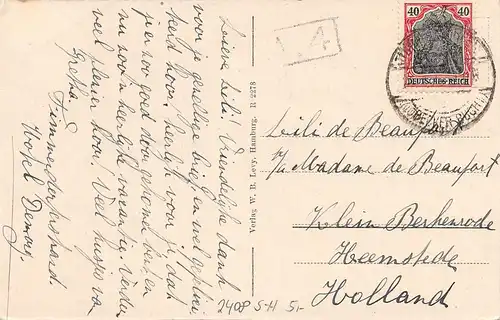 Lieve Lili. Vriendelijk dank
voor je gezellige brief en wel gefeli-
citeerd hoor. Heerlijk voor je dat
je er zoo goed door gekomen bent en
nu zoo'n heerlijke vacantie. Verder
veel plezier hoor. Veel kusjes van
Greta.
Timmendorferstrand.
Hotel
Verlag W. B. Levy, Hamburg. R 2278
A.4
40 40
DEUTSCHES REICH
Lili de Beaufort
p/a Madame de Beaufort
Klein Berkenrode
Heemstede
Holland
2408 S-H 5,-